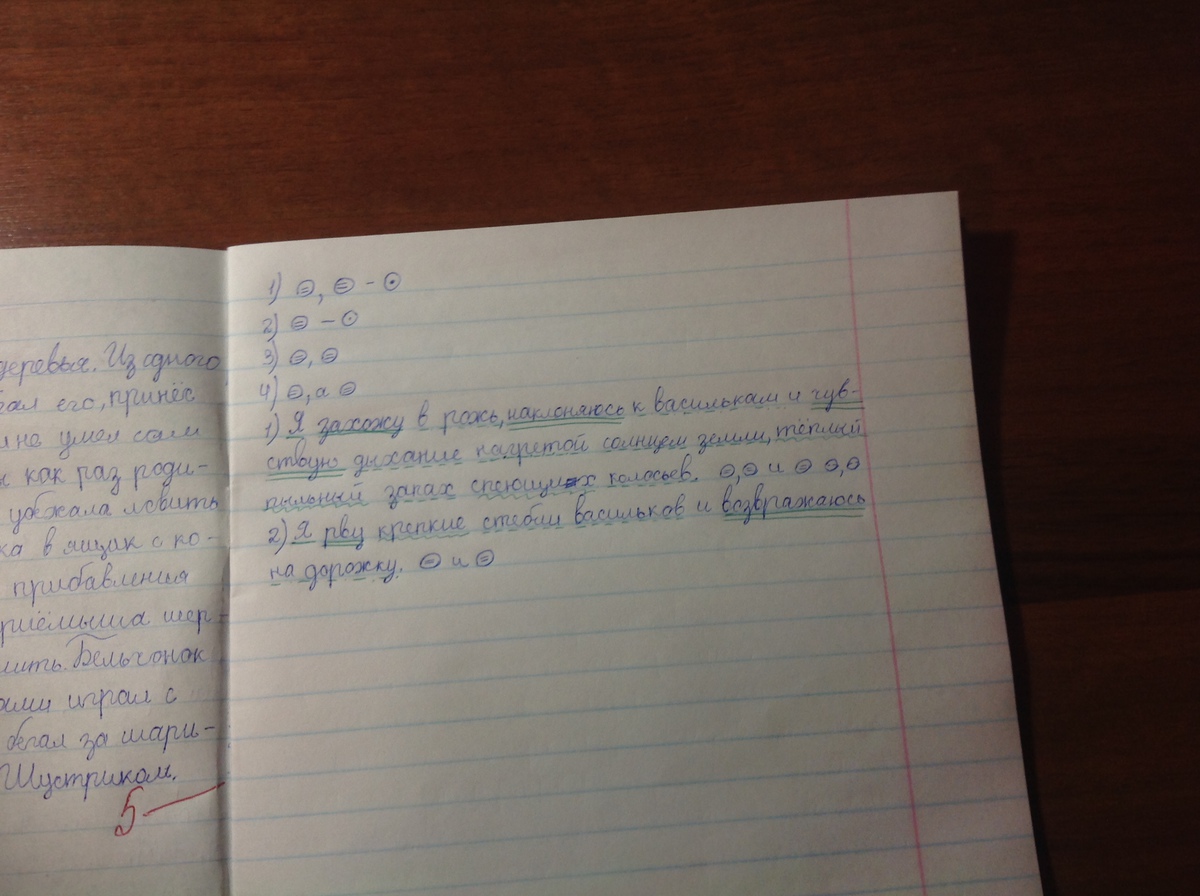 деревья. Из одного
его, принёс
не умел сам
как раз роди-
убежала ловить
в ящик с ко-
прибавления
приёмыша шер-
Бельчонок
играл с
бегал за шари-
Шустриком.
5
1) ⊖, ⊖ - ⊙
2) ⊖ - ⊙
3) ⊖, ⊖
4) ⊖, а ⊖
1) Я захожу в рожь, наклоняюсь к василькам и чув-
ствую дыхание нагретой солнцем земли, тёплый
пыльный запах спеющих колосьев. ⊖, ⊖ и ⊖ ⊖, ⊖
2) Я рву крепкие стебли васильков и возвражаюсь
на дорожку. ⊖ и ⊖